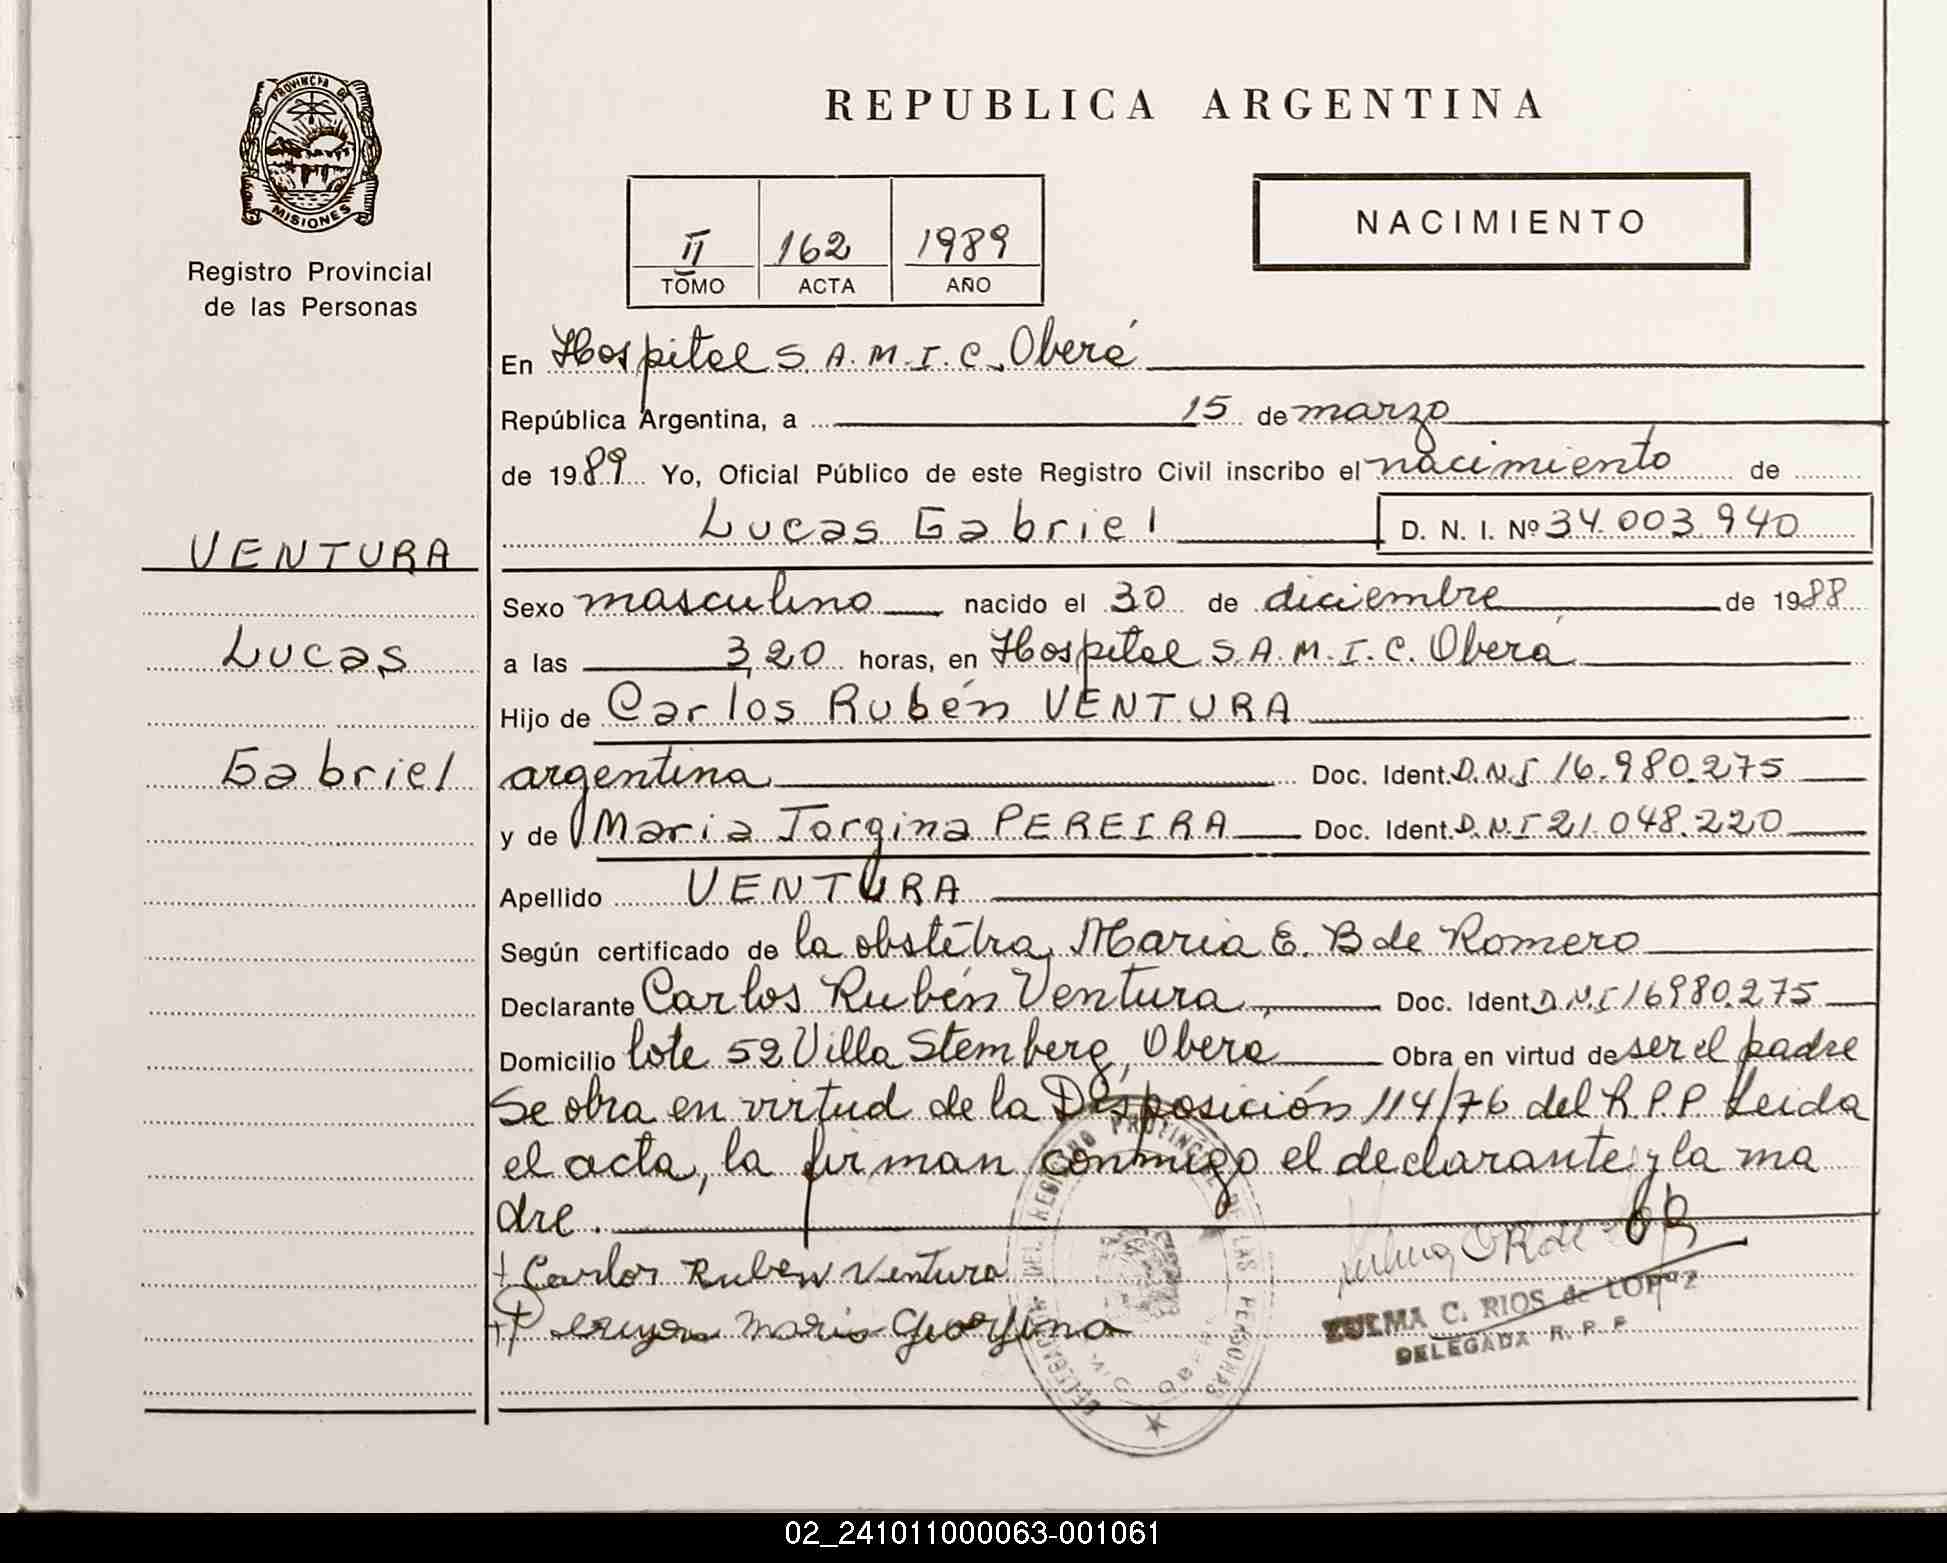 PROVINCIA DE
MISIONES
Registro Provincial
de las Personas
REPUBLICA ARGENTINA
II 162 1989
TOMO ACTA AÑO
NACIMIENTO
En Hospital S.A.M.I.C. Oberá
República Argentina, a 15 de marzo
de 1989 Yo, Oficial Público de este Registro Civil inscribo el nacimiento de
Lucas Gabriel D. N. I. Nº 34.003.940
VENTURA
Lucas
Gabriel
Sexo masculino nacido el 30 de diciembre de 1988
a las 3,20 horas, en Hospital S.A.M.I.C. Oberá
Hijo de Carlos Rubén VENTURA
argentina Doc. Ident. D.N.I 16.980.275
y de Maria Jorgina PEREIRA Doc. Ident. D.N.I 21.048.220
Apellido VENTURA
Según certificado de la obstétra Maria E. B de Romero
Declarante Carlos Rubén Ventura Doc. Ident D.N.I 16980.275
Domicilio lote 52 Villa Stemberg, Obera Obra en virtud de ser el padre
Se obra en virtud de la Disposición 114/76 del R.P.P. Leida
el acta, la firman conmigo el declarante y la ma
dre.
Carlos Ruben Ventura
Maria Georgina
DELEGACION DEL REGISTRO PROVINCIAL DE LAS PERSONAS
ZULMA C. RIOS de LOPEZ
DELEGADA R. P. P.
02_241011000063-001061